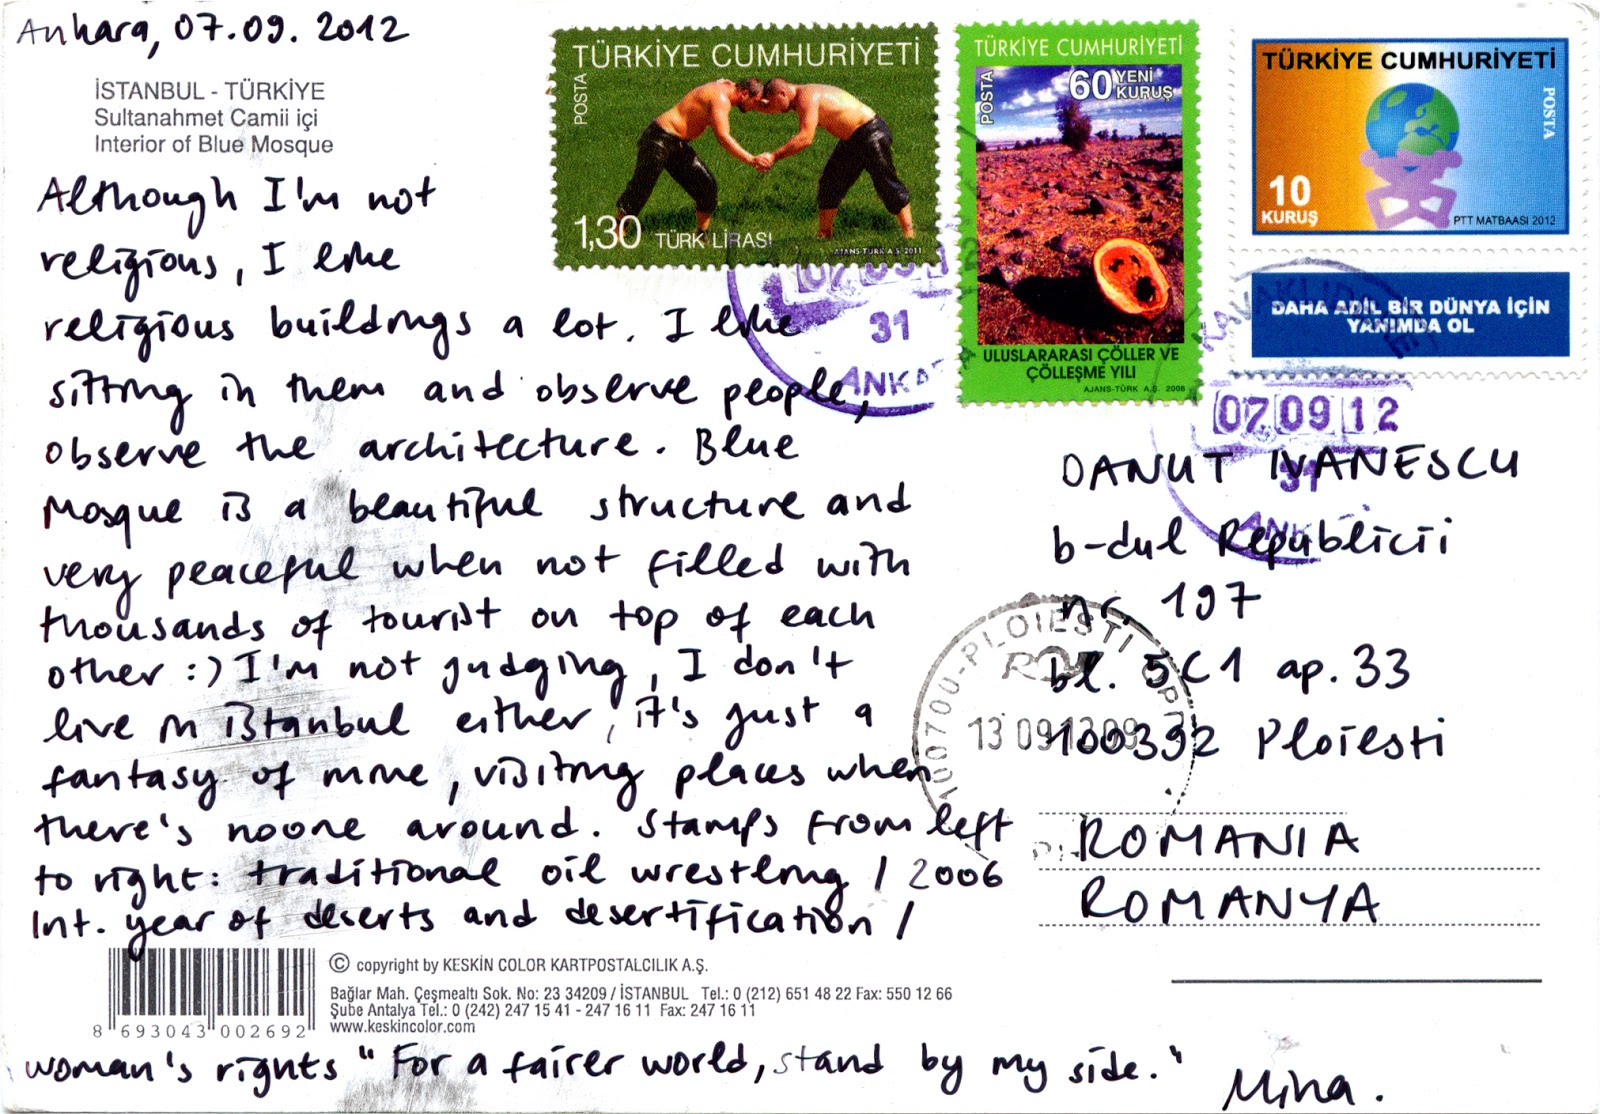 Ankara, 07.09.2012
İSTANBUL - TÜRKİYE
Sultanahmet Camii içi
Interior of Blue Mosque
Although I'm not
religious, I like
religious buildings a lot. I like
sitting in them and observe people,
observe the architecture. Blue
Mosque is a beautiful structure and
very peaceful when not filled with
thousands of tourist on top of each
other :) I'm not judging, I don't
live in istanbul either, it's just a
fantasy of mine, visiting places when
there's noone around. Stamps from left
to right: traditional oil wrestling / 2006
Int. year of deserts and desertification /
woman's rights "For a fairer world, stand by my side."
Mina.
TÜRKİYE CUMHURİYETİ
POSTA
1,30 TÜRK LİRASI
AJANS-TÜRK A.Ş. 2011
TÜRKİYE CUMHURİYETİ
POSTA
60 YENİ
KURUŞ
ULUSLARARASI ÇÖLLER VE
ÇÖLLEŞME YILI
AJANS-TÜRK A.Ş. 2006
TÜRKİYE CUMHURİYETİ
POSTA
10
KURUŞ
PTT MATBAASI 2012
DAHA ADİL BİR DÜNYA İÇİN
YANIMDA OL
07 09 12
31
ANKA
KAVAKLIDERE
07 09 12
31
ANK
DANUT IVANESCU
b-dul Republicii
nr. 197
bl. 5C1 ap. 33
100392 Ploiesti
ROMANIA
ROMANYA
100700-PLOIESTI
13 09 12 09
© copyright by KESKİN COLOR KARTPOSTALCILIK A.Ş.
Bağlar Mah. Çeşmealtı Sok. No: 23 34209 / İSTANBUL Tel.: 0 (212) 651 48 22 Fax: 550 12 66
Şube Antalya Tel.: 0 (242) 247 15 41 - 247 16 11 Fax: 247 16 11
www.keskincolor.com
8 693043 002692